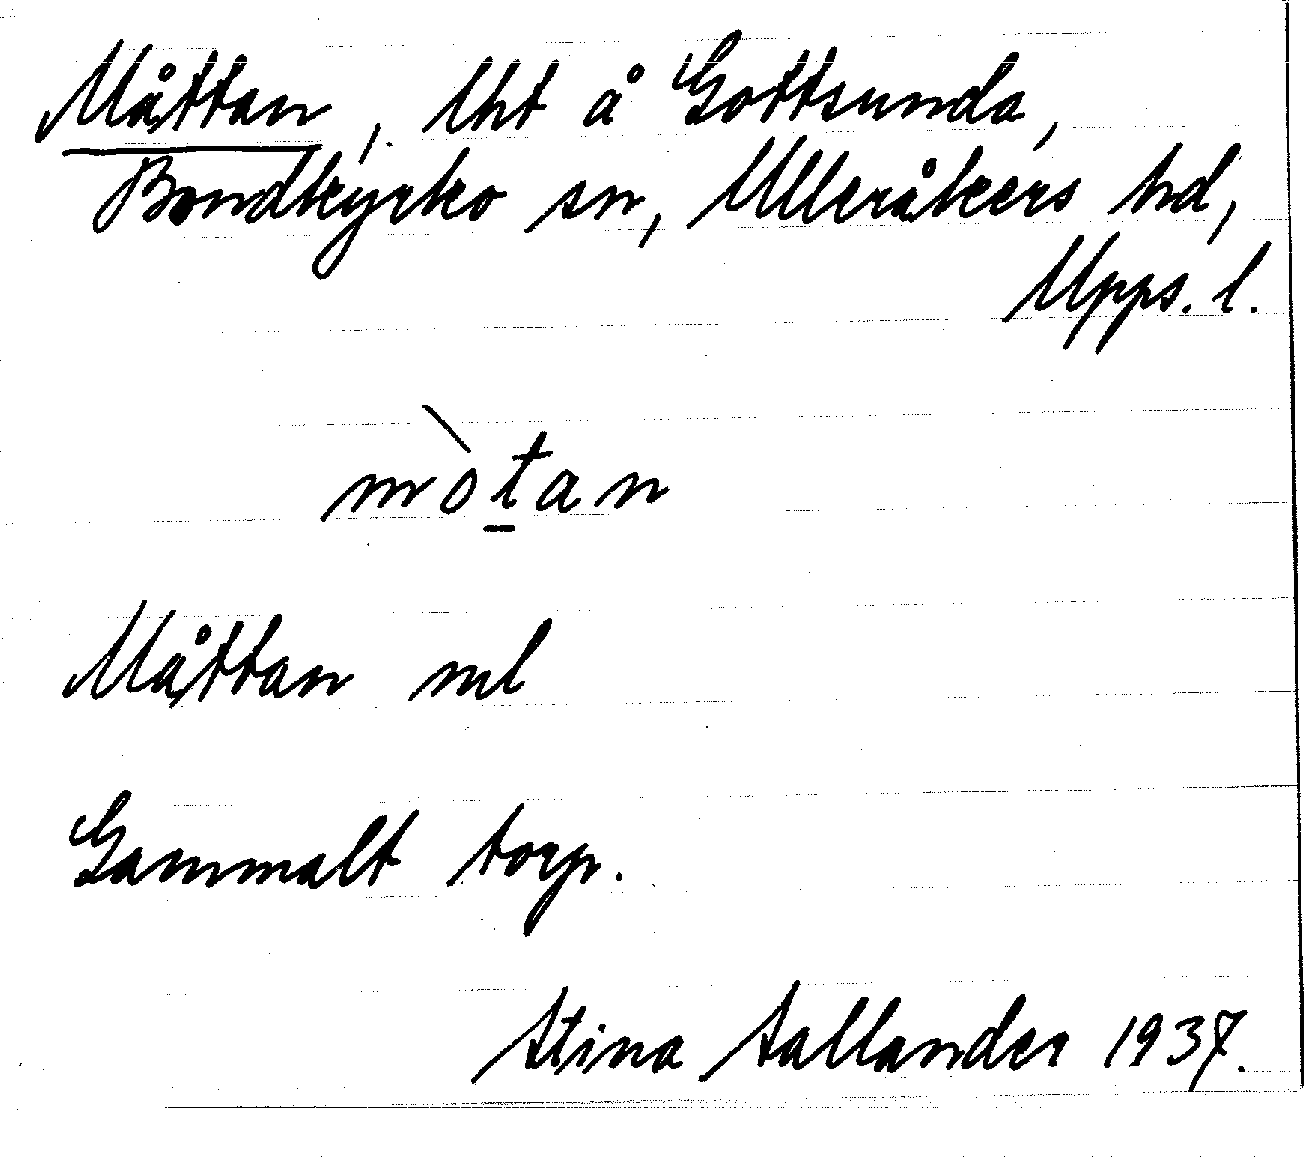 Måttan, lht å Gottsunda,
Bondkyrko sn, Ulleråkers hd,
Upps. l.
mòtan
Måttan ml
Gammalt torp.
Stina Tallander 1937.